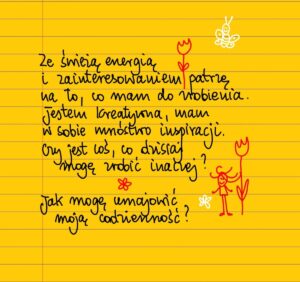 Ze świeżą energią
i zainteresowaniem patrzę
na to, co mam do zrobienia.
Jestem kreatywna, mam
w sobie mnóstwo inspiracji.
Czy jest coś, co dzisiaj
mogę zrobić inaczej?
Jak mogę umajowić
moją codzienność?